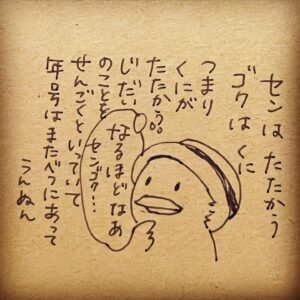 センはたたかう
ゴクはくに
つまり
くにが
たたかう。。
じだい
のことを
せんごくといっていて
年号はまたべつにあって
うんぬん
なるほどなあ
センゴク…